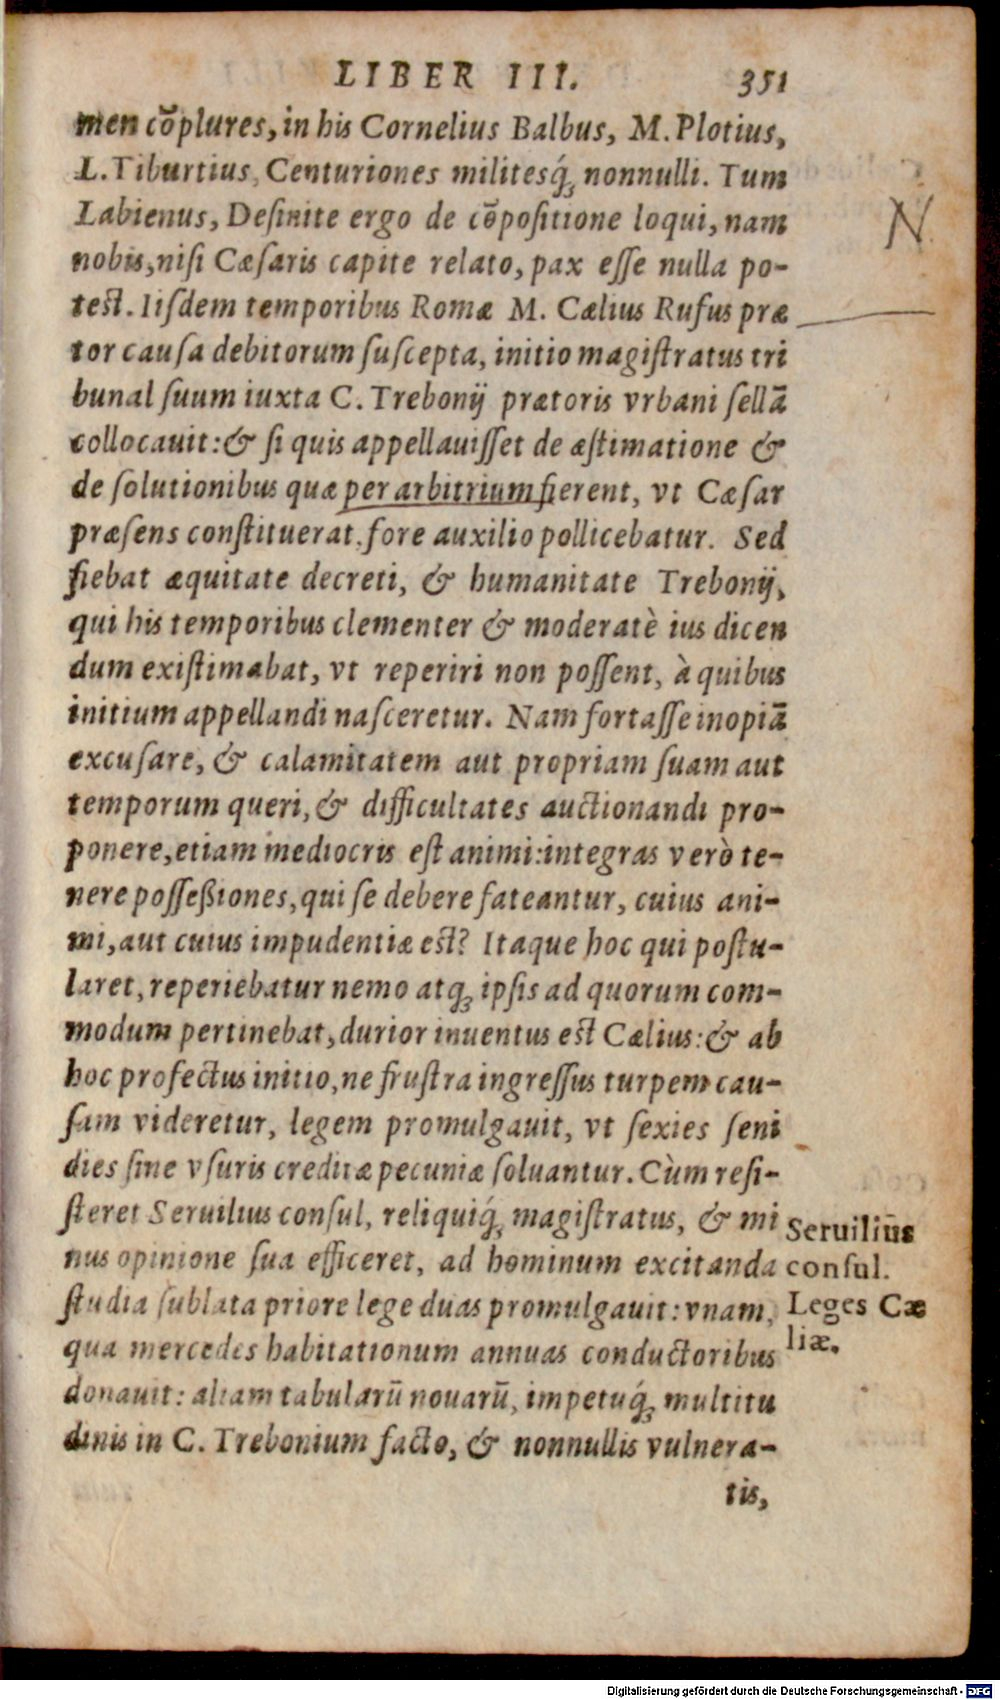 LIBER III. 351
men cõplures, in his Cornelius Balbus, M. Plotius,
L. Tiburtius, Centuriones militesq́; nonnulli. Tum
Labienus, Desinite ergo de cõpositione loqui, nam
N
nobis, nisi Cæsaris capite relato, pax esse nulla po-
test. Iisdem temporibus Romæ M. Cælius Rufus præ
tor causa debitorum suscepta, initio magistratus tri
bunal suum iuxta C. Trebonij prætoris vrbani sellã
collocauit: & si quis appellauisset de æstimatione &
de solutionibus quæ per arbitrium fierent, vt Cæsar
præsens constituerat, fore auxilio pollicebatur. Sed
fiebat æquitate decreti, & humanitate Trebonij,
qui his temporibus clementer & moderatè ius dicen
dum existimabat, vt reperiri non possent, à quibus
initium appellandi nasceretur. Nam fortasse inopiã
excusare, & calamitatem aut propriam suam aut
temporum queri, & difficultates auctionandi pro-
ponere, etiam mediocris est animi: integras verò te-
nere posseßiones, qui se debere fateantur, cuius ani-
mi, aut cuius impudentiæ est? Itaque hoc qui postu-
laret, reperiebatur nemo atq; ipsis ad quorum com-
modum pertinebat, durior inuentus est Cælius: & ab
hoc profectus initio, ne frustra ingressus turpem cau-
sam videretur, legem promulgauit, vt sexies seni
dies sine vsuris creditæ pecuniæ soluantur. Cùm resi-
steret Seruilius consul, reliquiq́; magistratus, & mi
Seruiliũs
nus opinione sua efficeret, ad hominum excitanda
consul.
studia sublata priore lege duas promulgauit: vnam,
Leges Cæ
qua mercedes habitationum annuas conductoribus
liæ.
donauit: aliam tabularũ nouarũ, impetuq́; multitu
dinis in C. Trebonium facto, & nonnullis vulnera-
tis,
Digitalisierung gefördert durch die Deutsche Forschungsgemeinschaft - DFG